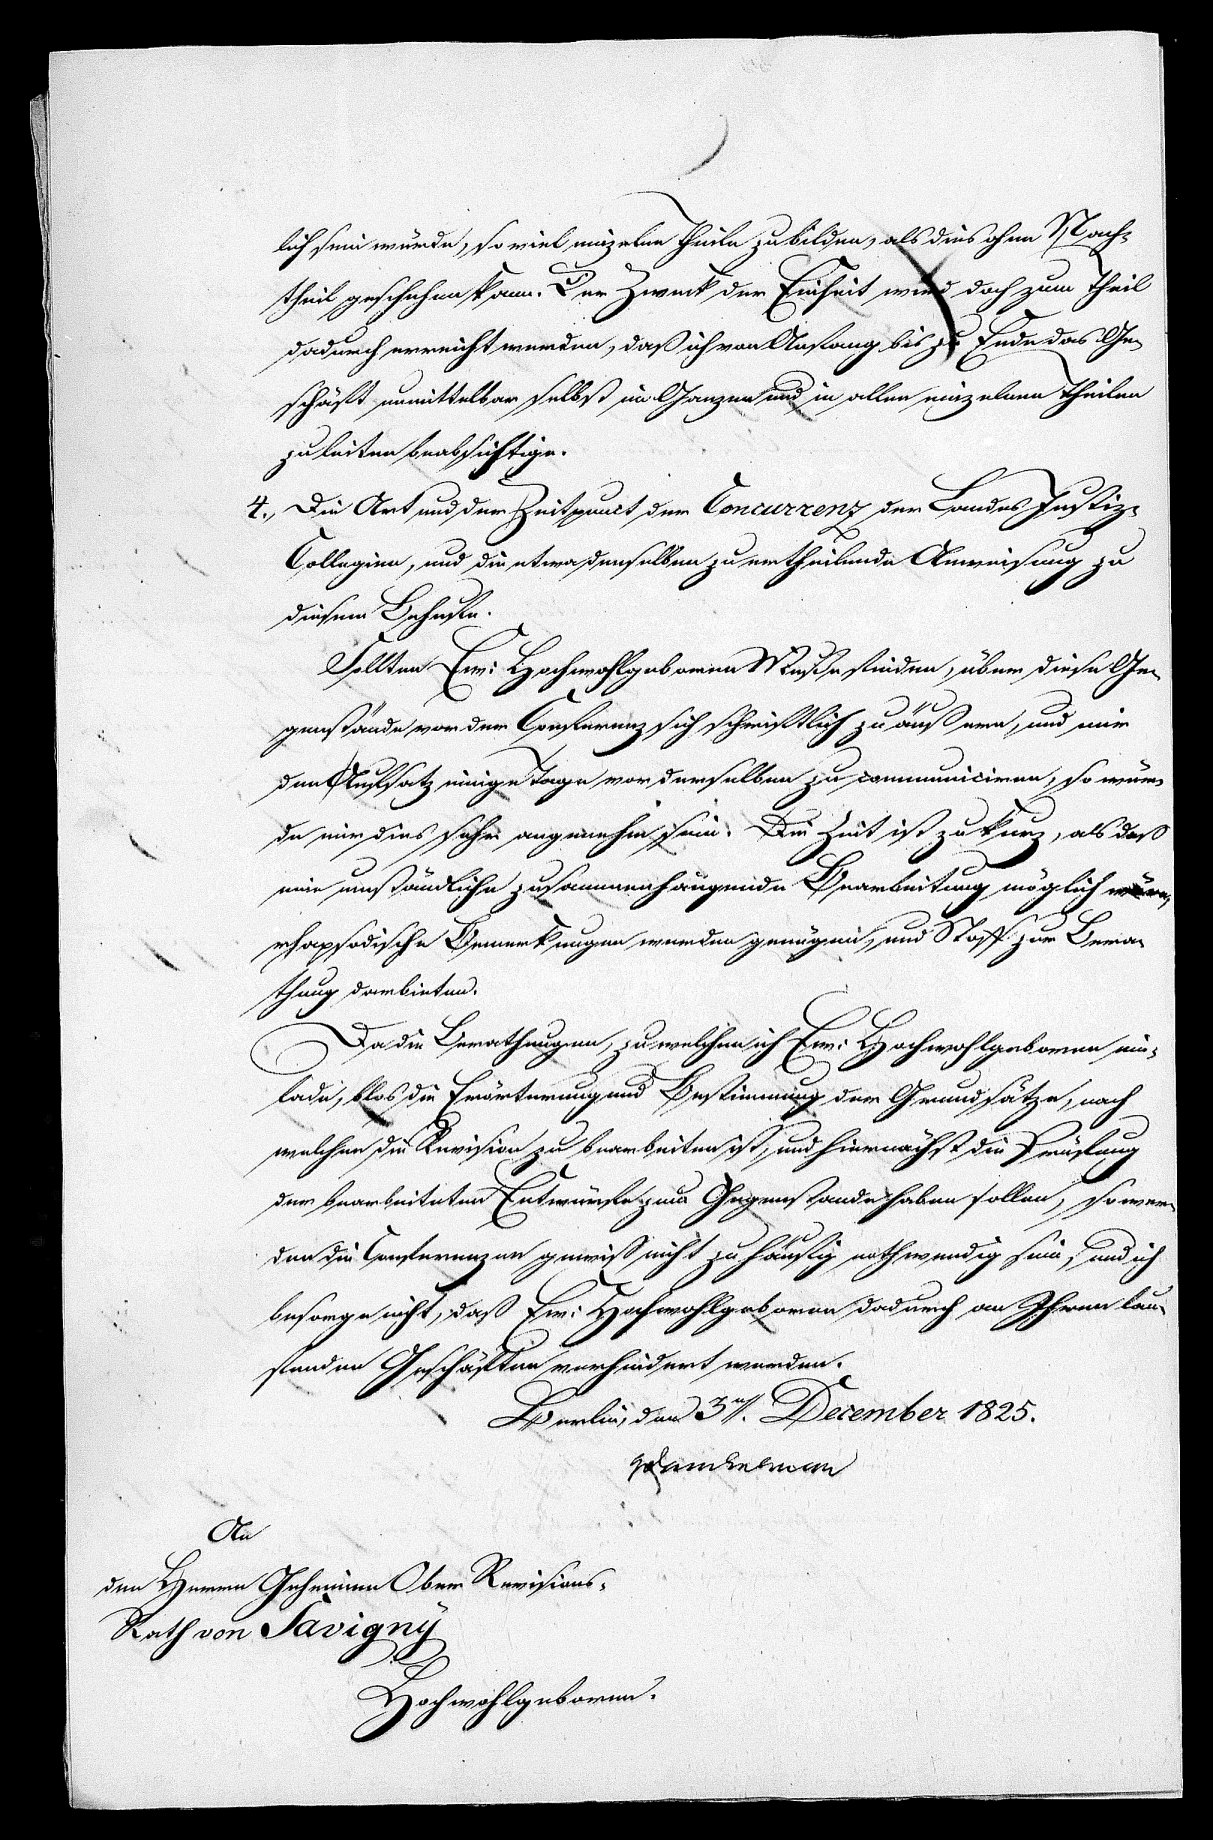 lich sein würde, so viel einzelne Theile zu bilden, als dies ohne Nach-
theil geschehen kann. Der Zweck der Einheit wird doch zum Theil
dadurch erreicht werden, daß ich von Anfang bis zu Ende das Ge-
schäft unmittelbar selbst im Ganzen und in allen einzelnen Theilen
zu leiten beabsichtige.
4., Die Art und der Zeitpunct der Concurrenz der Landes Justiz-
Collegien, und die etwa denselben zu ertheilende Anweisung zu
diesem Behufe.
Sollten Ew: Hochwohlgeboren Muße finden, über diese Ge-
genstände vor der Conferenz sich schriftlich zu äußern, und mir
den Aufsatz einige Tage vor derselben zu communiciren, so wür-
de mir dies sehr angenehm sein. Die Zeit ist zu kurz, als daß
eine umständliche zusammenhängende Bearbeitung möglich wäre,
rhapsodische Bemerkungen werden genügen, und Stoff zur Bera-
thung darbieten.
Da die Berathungen, zu welchen ich Ew: Hochwohlgeboren ein-
lade, blos die Erörterung und Bestimmung der Grundsätze, nach
welchen die Revision zu bearbeiten ist, und hiernächst die Prüfung
der bearbeiteten Entwürfe zum Gegenstande haben sollen, so wer-
den die Conferenzen gewiß nicht zu häufig nothwendig sein, und ich
besorge nicht, daß Ew: Hochwohlgeboren dadurch an Ihren lau-
fenden Geschäften verhindert werden.
Berlin, den 3ten December 1825.
Danckelman
An
den Herrn Geheimen Ober Revisions-
Rath von Savigny
Hochwohlgeboren.